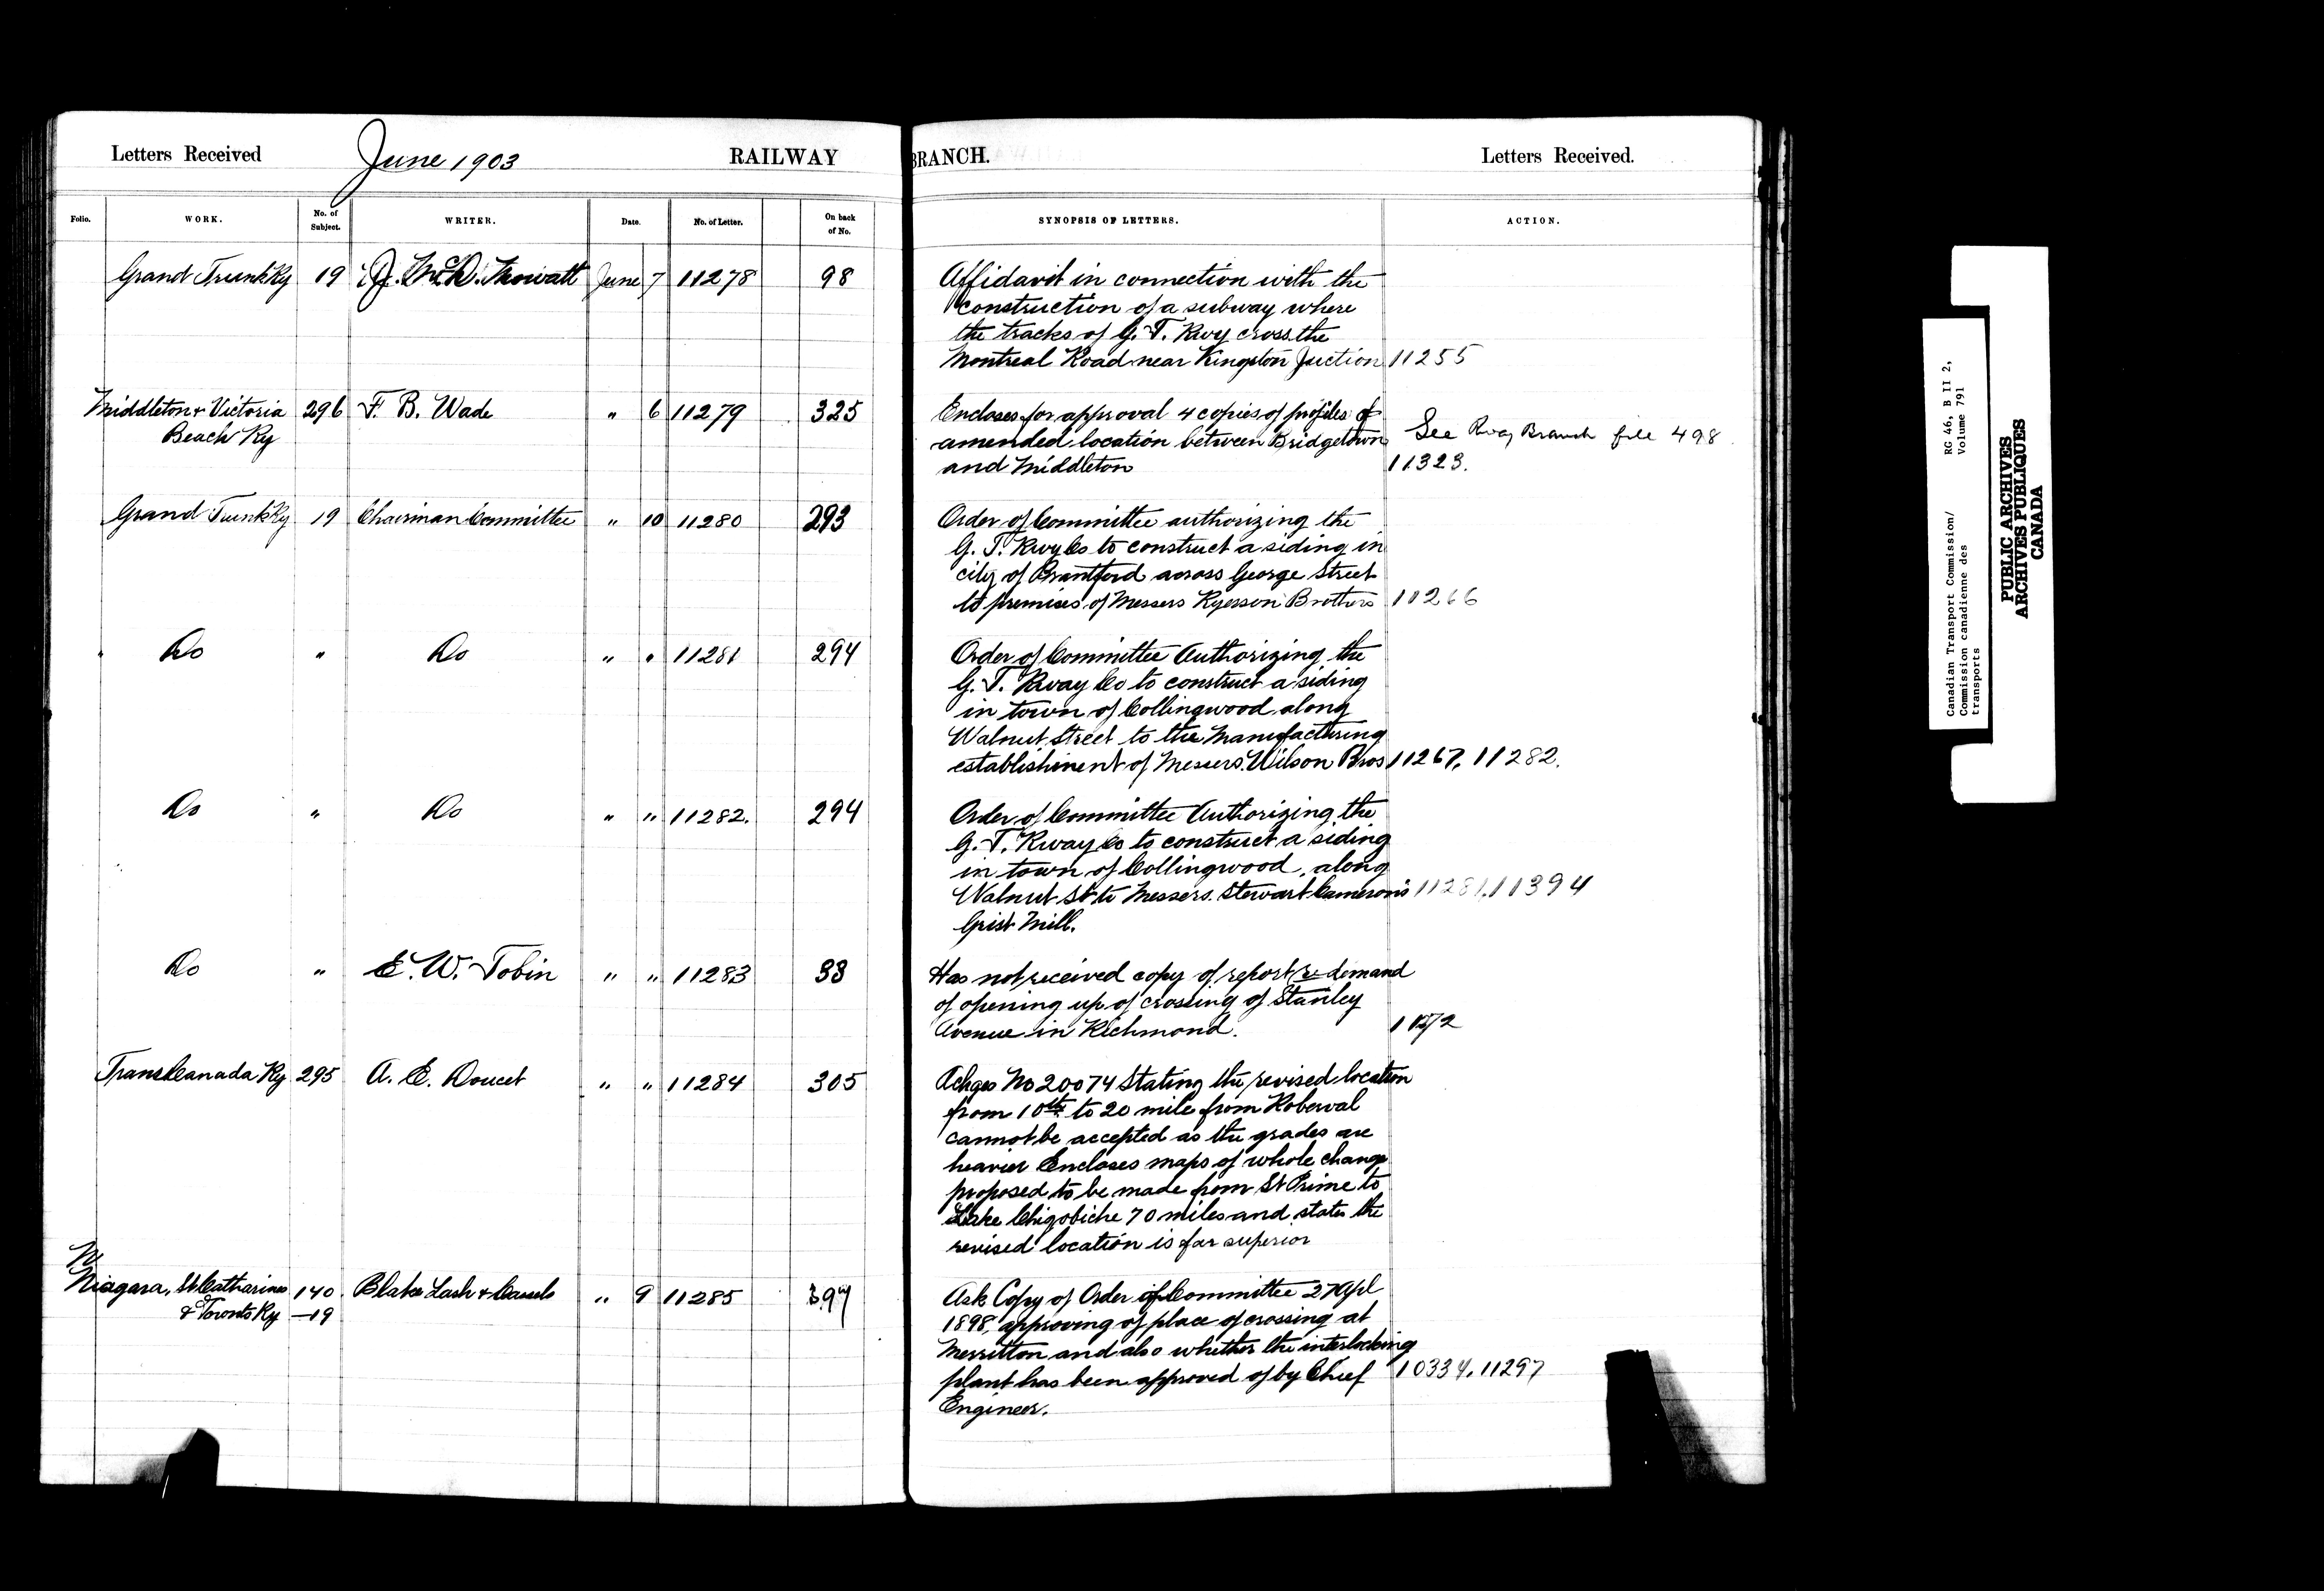 Letters Received June 1903 RAILWAY BRANCH. Letters Received.
Folio. WORK. No. of Subject. WRITER. Date. No. of Letter. On back of No. SYNOPSIS OF LETTERS. ACTION.
Grand Trunk Ry 19 J. McD. Mowatt June 7 11278 98 Affidavit in connection with the
construction of a subway where
the tracks of G. T. Rwy cross the
Montreal Road near Kingston Juction 11255
Middleton & Victoria 296 F. B. Wade " 6 11279 325 Encloses for approval 4 copies of profiles of
Beach Ry amended location between Bridgetown See Rway Branch file 498
and Middleton 11323.
Grand Trunk Ry 19 Chairman Committee " 10 11280 293 Order of Committee authorizing the
G. T. Rwy Co to construct a siding in
city of Brantford across George Street
to premises of Messers Ryerson Brothers 11266
Do " Do " " 11281 294 Order of Committee Authorizing the
G. T. Rway Co to construct a siding
in town of Collingwood along
Walnut Street to the Manufacturing
establishment of Messers. Wilson Bros 11267, 11282.
Do " Do " " 11282. 294 Order of Committee Authorizing the
G. T. Rway Co to construct a siding
in town of Collingwood, along
Walnut St to Messers. Stewart Cameron's 11281, 11394
Grist Mill.
Do " E. W. Tobin " " 11283 Has not received copy of report re demand
of opening up of crossing of Stanley
Avenue in Richmond.
Trans Canada Ry 295 A. E. Doucet " " 11284 305 Ackges No 20074 Stating the revised location
from 10th to 20 mile from Roberval
cannot be accepted as the grades are
heavier Encloses maps of whole change
proposed to be made from St Prime to
Lake Chigobiche 70 miles and states the
revised location is far superior
Niagara, St Catharines 140 Blake Lash & Cassels " 9 11285 397 Ask Copy of Order of Committee 27 Apl
& Toronto Ry —19 1898, approving of place of crossing at
Merritton and also whether the interlocking
plant has been approved of by Chief 10334, 11297
Engineer.
Canadian Transport Commission/ RG 46, B II 2,
Commission canadienne des Volume 791
transports
PUBLIC ARCHIVES
ARCHIVES PUBLIQUES
CANADA